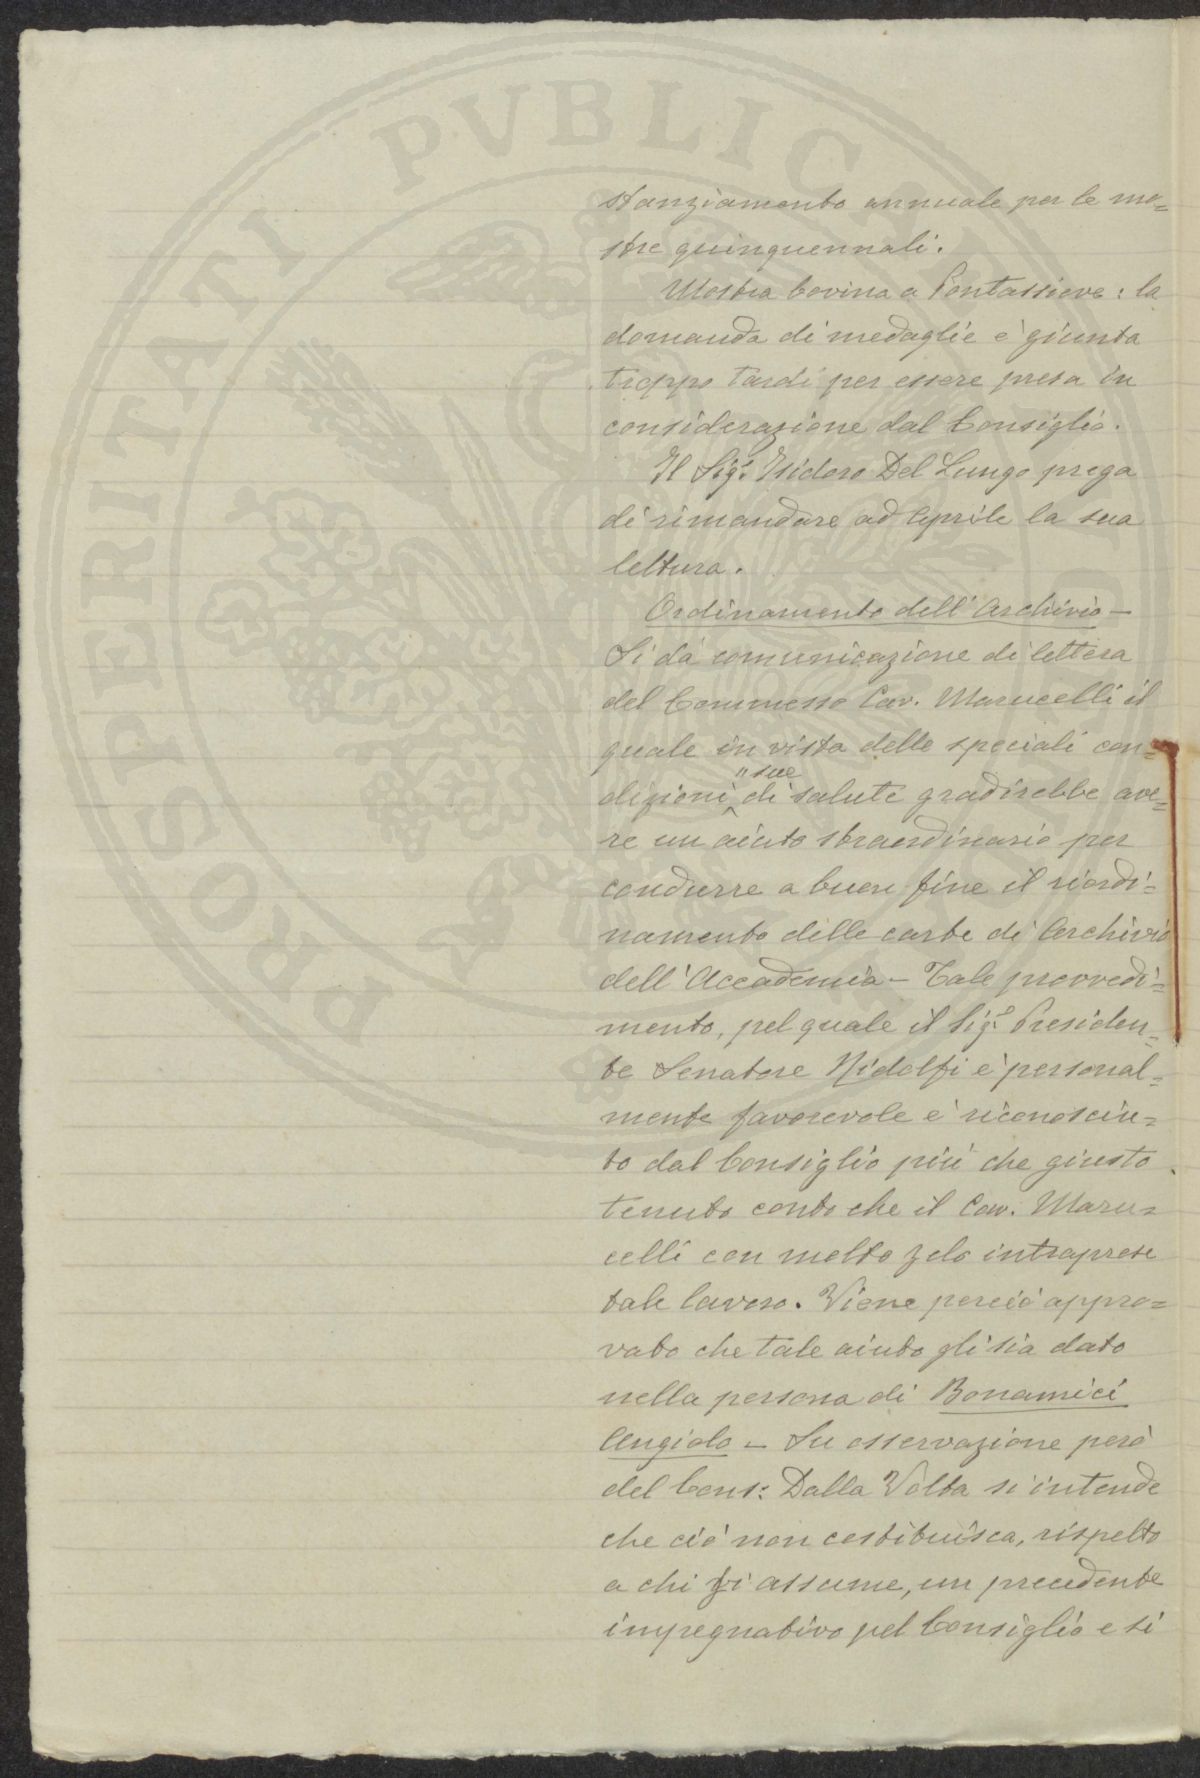 PROSPERITATI PVBLICAE
stanziamento annuale per le mo=
stre quinquennali.
Mostra bovina a Pontassieve: la
domanda di medaglie è giunta
troppo tardi per essere presa in
considerazione dal Consiglio.
Il Sigr. Isidoro Del Lungo prega
di rimandare ad Aprile la sua
lettura.
Ordinamento dell'Archivio —
Si dà comunicazione di lettera
del Commesso Cav. Marucelli il
quale in vista delle speciali con=
"sue
dizioni di salute gradirebbe ave=
re un aiuto straordinario per
condurre a buon fine il riordi=
namento delle carte di Archivio
dell'Accademia — Tale provvedi=
mento, pel quale il Sigr. Presiden=
te Senatore Ridolfi è personal=
mente favorevole è riconosciu=
to dal Consiglio più che giusto
tenuto conto che il Cav. Maru=
celli con molto zelo intraprese
tale lavoro. Viene perciò appro=
vato che tale aiuto gli sia dato
nella persona di Bonamici
Angiolo — Su osservazione però
del Cons: Dalla Volta si intende
che ciò non costituisca, rispetto
a chi si assume, un precedente
impegnativo pel Consiglio e si